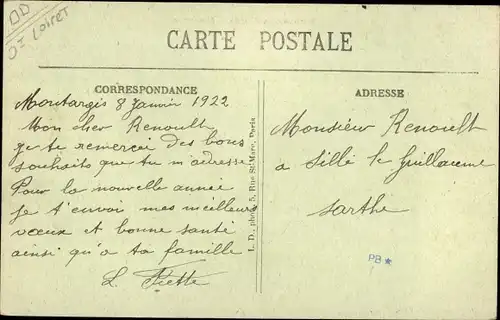 Dt Loiret
CARTE POSTALE
CORRESPONDANCE
Montargis 8 Janvier 1922
Mon cher Renoult
je te remercie des bons
souhaits que tu m'adresse
Pour la nouvelle année
je t'envoi mes meilleurs
vœux et bonne santé
ainsi qu'a ta famille
L.
L. D., phot., 5, Rue St-Marc, Paris
ADRESSE
Monsieur Renoult
a Sillé le Guillaume
Sarthe
PB*